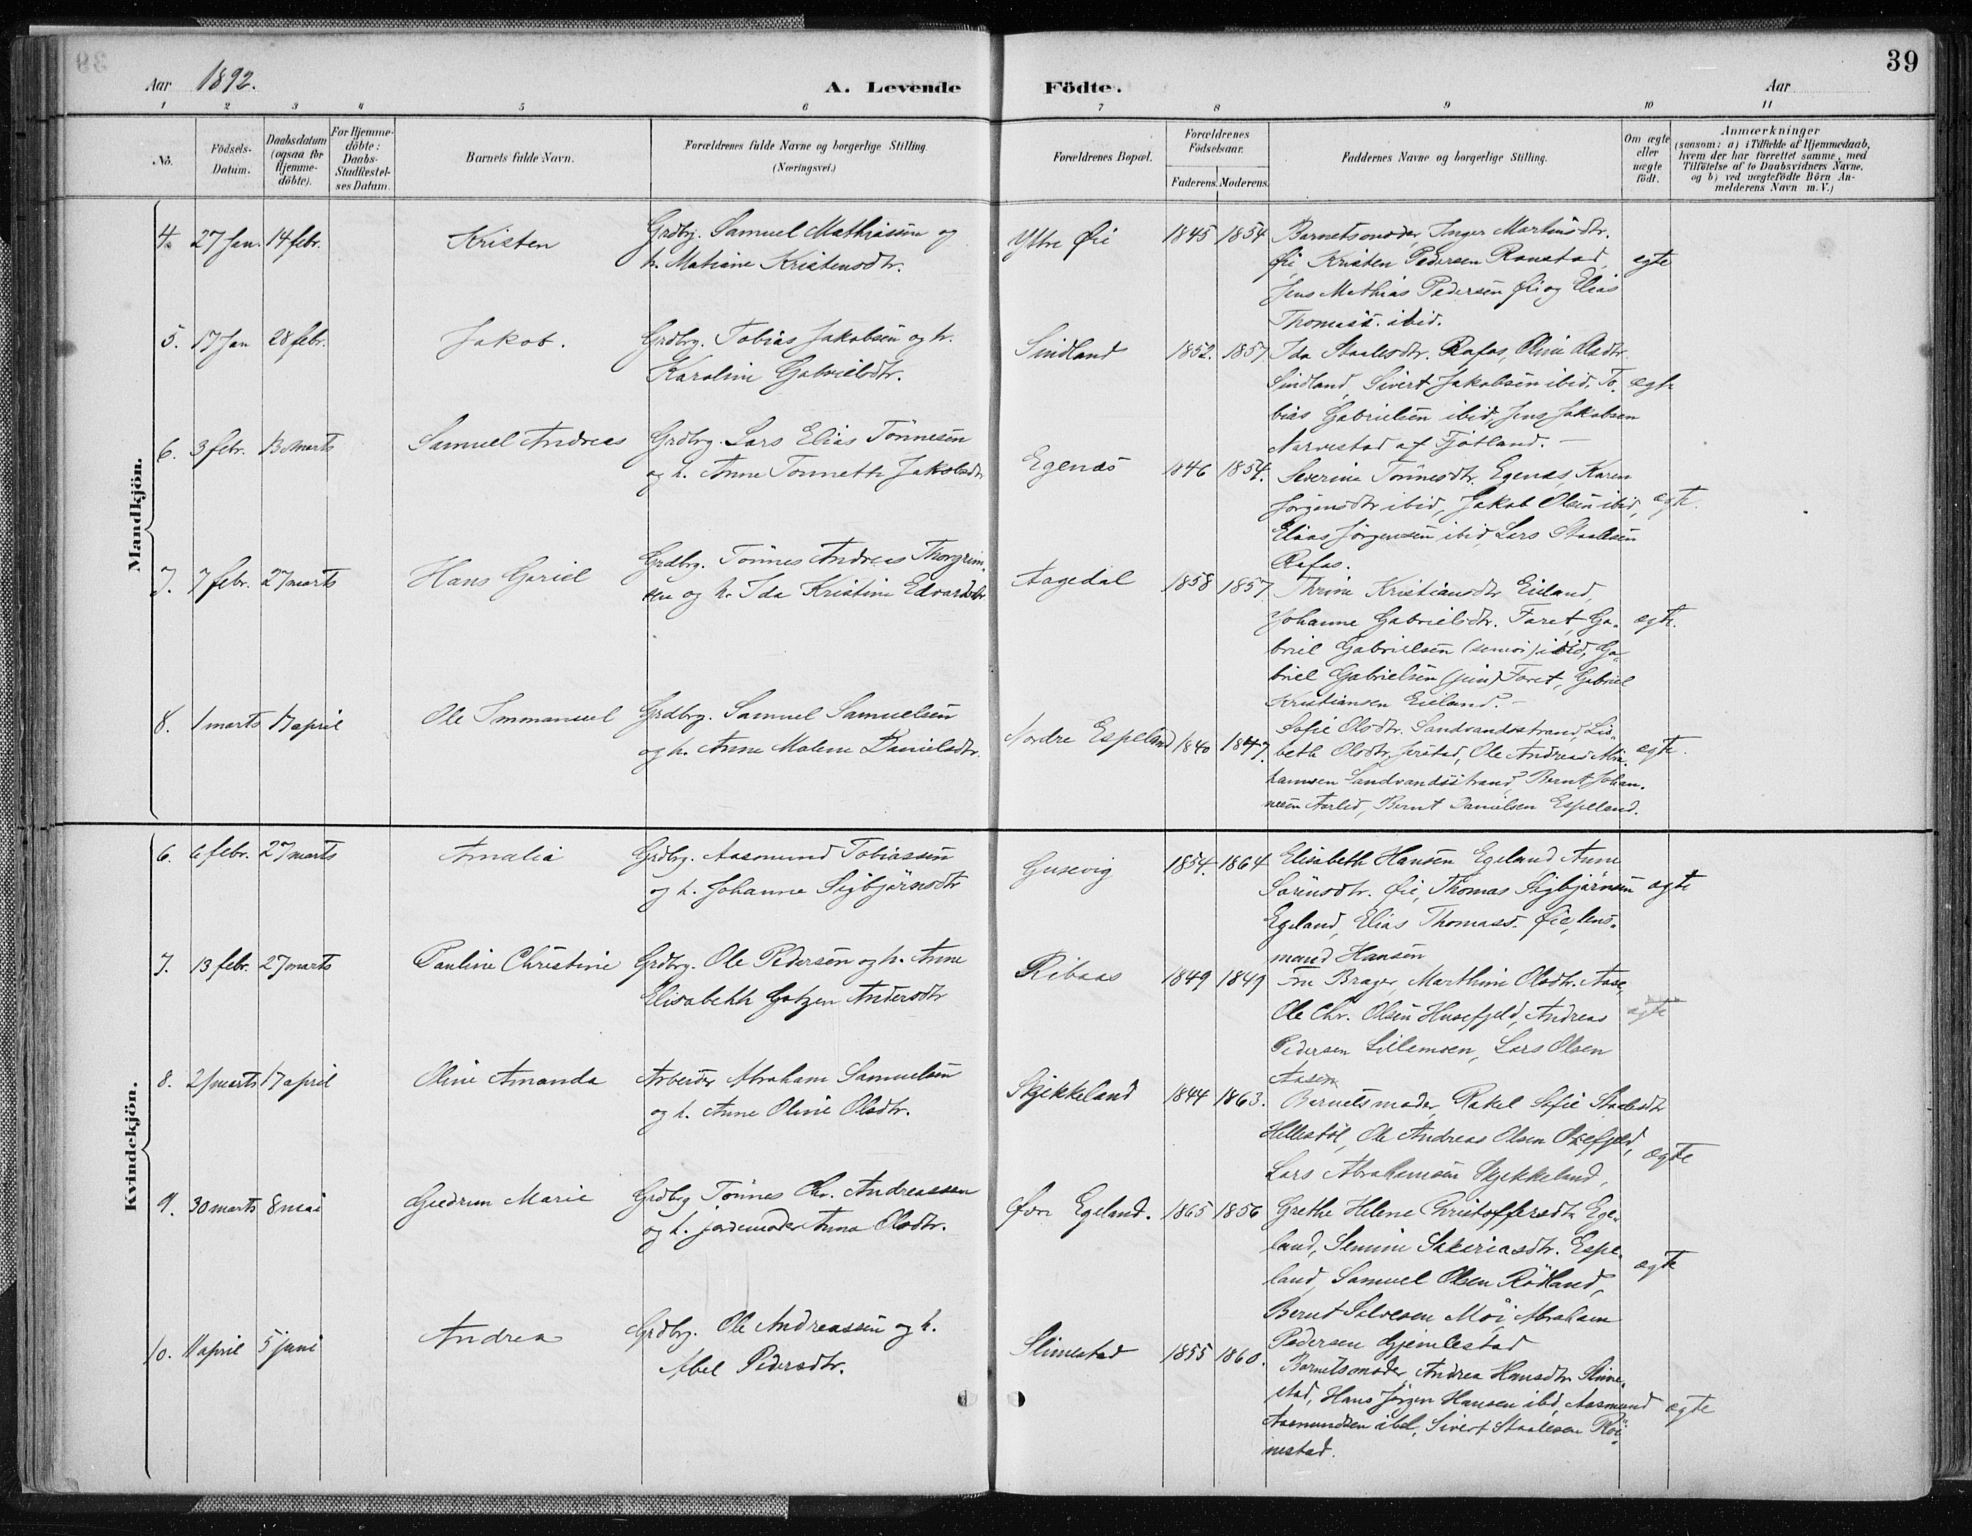 39
Aar 1892.
A. Levende Födte.
Aar
1 2 3 4 5 6 7 8 9 10 11
No.
Födsels-Datum.
Daabsdatum (ogsaa for Hjemme-döbte).
For Hjemme-döbte: Daabs-Stadfæstel-ses Datum.
Barnets fulde Navn.
Forældrenes fulde Navne og borgerlige Stilling.
(Næringsvei.)
Forældrenes Bopæl.
Forældrenes Födselsaar.
Faderens. Moderens.
Faddernes Navne og borgerlige Stilling.
Om ægte eller uægte födt.
Anmærkninger
(saasom: a) i Tilfælde af Hjemmedaab, hvem der har forrettet samme, med Tilföielse af to Daabsvidners Navne, og b) ved uægtefödte Börn An-melderens Navn m. V.)
Mandkjön.
4. 27 Jan. 14 febr. Kristen
Grdbrg. Samuel Mathiasen og
h. Matiane Kristensdtr.
Ytre Øie 1845 1854
Barnetsmoder, Inger Martinsdtr.
Øie, Kristen Pedersen Ronestad,
Jens Mathias Pedersen Øie og Elias
Thomass. ibid.
egte
5. 17 Jan 28 febr. Jakob.
Grdbrg. Tobias Jakobsen og h.
Karoline Gabrielsdtr.
Sindland 1852. 1857
Ida Staalesdtr. Rafos, Oline Olsdtr.
Sindland, Sivert Jakobsen ibid, To-
bias Gabrielsen ibid, Jens Jakobsen
Narvestad af Fjotland. –
ægte
6. 3 febr. 13 marts Samuel Andreas
Grdbrg. Lars Elias Tönnesen
og h. Anne Tonnette Jakobsdtr
Egenæs 1846 1854.
Severine Tönnesdtr. Egenæs, Karen
Jørgensdtr ibid, Jakob Olsen ibid,
Elias Jørgensen ibid, Lars Staalesen
Rafos.
ægte.
7. 7 febr. 27 marts Hans Gariel
Grdbrg. Tönnes Andreas Thorgrim-
sen og h. Ida Kristine Edvardsdtr
Aagedal 1858 1857
Thrine Kristiansdtr Eieland,
Johanne Gabrielsdtr. Faret, Ga-
briel Gabrielsen (senior) ibid, Ga-
briel Gabrielsen (jun) Faret, Gabriel
Kristiansen Eieland. –
ægte.
8. 1 marts 17 april Ole Immanuel
Grdbrg. Samuel Samuelsen
og h. Anne Malene Danielsdtr.
Nordre Espeland 1840 1847.
Sofie Olsdtr. Sandvandsstrand, Lis-
beth Olsdtr. Jerstad, Ole Andreas Abra-
hamsen Sandvandsstrand, Bernt Johan-
nesen Aarlid, Bernt Danielsen Espeland.
ægte.
Kvindekjön.
6. 6 febr. 27 marts Amalia
Grdbrg. Aasmund Tobiassen
og h. Johanne Sigbjørnsdtr
Gusevig 1854. 1864
Elisabeth Hansen Egeland Anne
Sørensdtr. Øie, Thomas Sigbjørnsen
Egeland, Elias Thomass. Øie, lens-
mand Hansen
ægte
7. 13 febr. 27 marts Pauline Christine
Grdbrg. Ole Pedersen og h. Anne
Elisabeth Gotzen Andersdtr
Ribaas 1849 1849
Fru Brager, Marthine Olsdtr. Aase,
Ole Chr. Olsen Husefjeld, Andreas
Pedersen Lillemoen, Lars Olsen
Aasen
ægte
8. 2 marts 17 april Oline Amanda
Arbeider Abraham Samuelsen
og h. Anne Oline Olsdtr.
Skjekkeland 1844 1863.
Barnetsmoder, Rakel Sofie Staalesdtr
Hellestöl, Ole Andreas Olsen Oxefjeld,
Lars Abrahamsen Skjekkeland,
ægte
9. 30 marts 8 mai Gudrun Marie
Grdbrg Tönnes Chr. Andreassen
og h. jordemoder Anna Olsdtr.
Øvre Egeland. 1865 1856
Grethe Helene Christoffersdtr Ege-
land, Semine Sakeriasdtr. Espe-
land, Samuel Olsen Rödland,
Bernt Salvesen Moi, Abraham
Pedersen Gjemlestad
ægte
10. 11 april 5 juni Andrea
Grdbrg. Ole Andreassen og h.
Abel Pedersdtr.
Slimestad 1855 1860.
Barnetsmoder, Andrea Hansdtr Slime-
stad, Hans Jørgen Hansen ibid, Aasmund
Aasmundsen ibd, Sivert Staalesen Röi-
nestad.
ægte